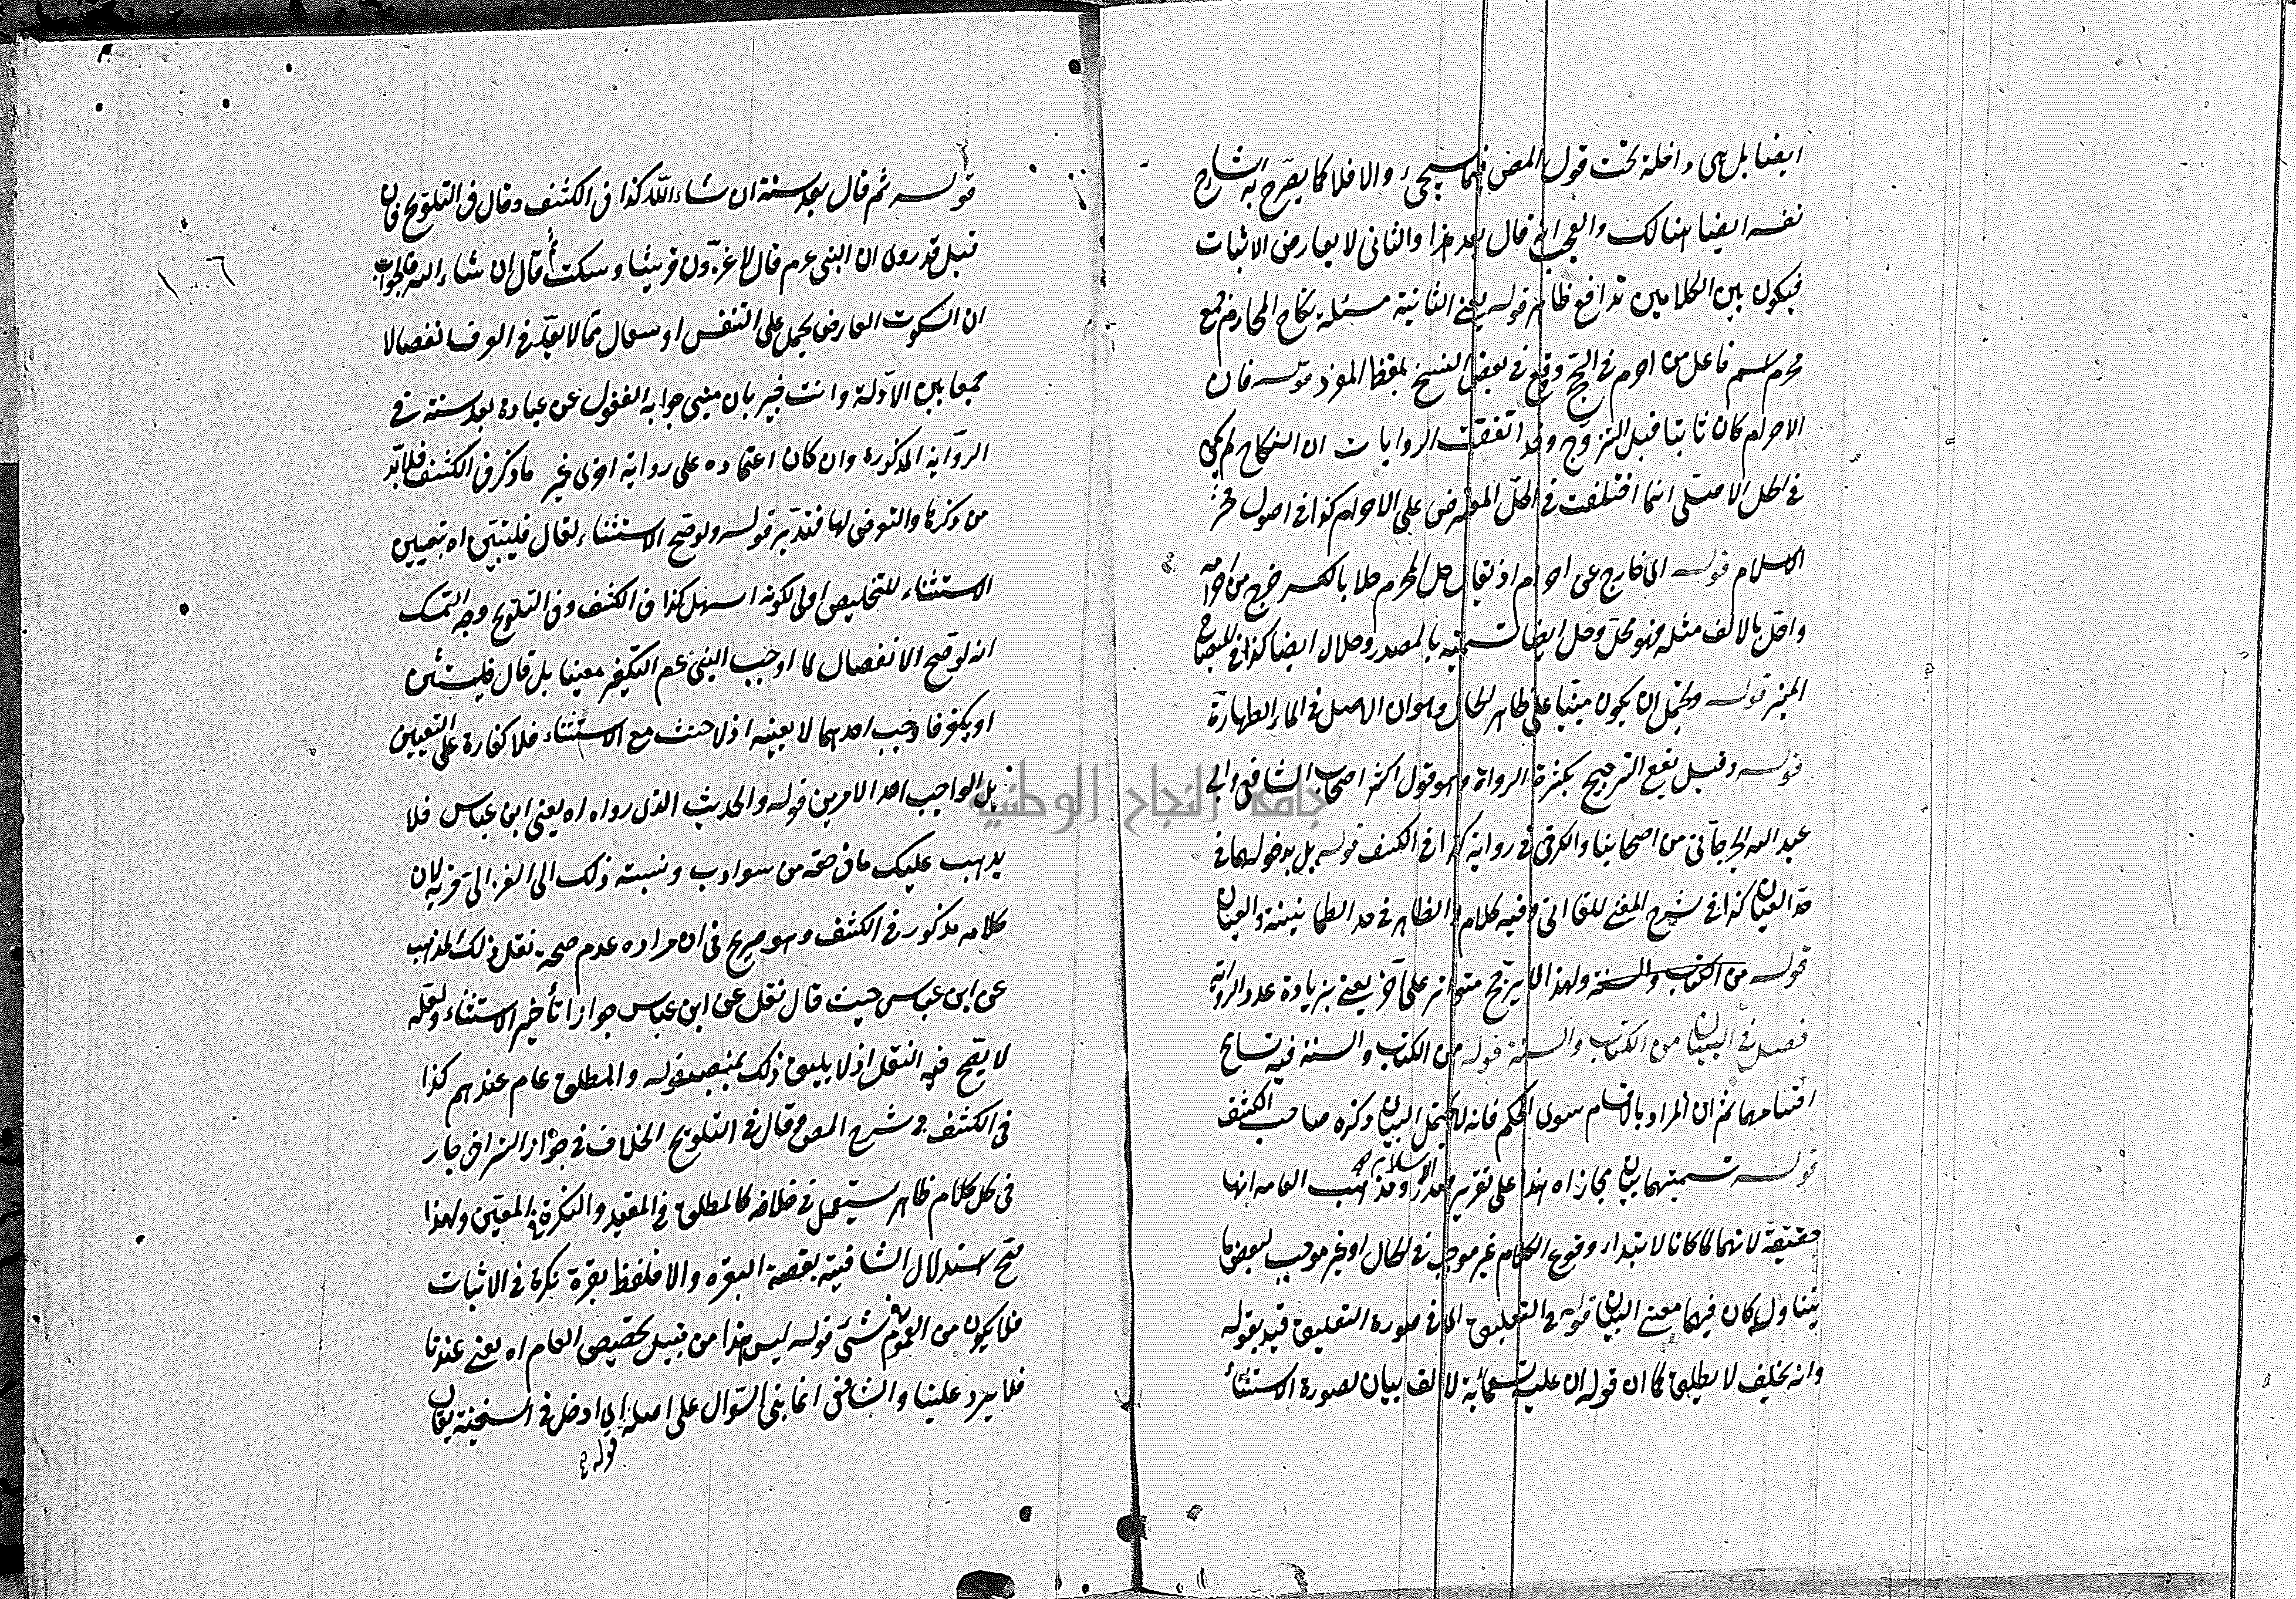 ايضا بل هى داخلة تحت قول المص فيما سيجىء والا فلا كما يصرح به الشارح
نفسه ايضا هنالك والعجب انه قال بعد هذا والثانى لا يعارض الاثبات
فيكون بين الكلامين تدافع ظاهر قوله يعنى الثانية مسئلة نكاح المحارم جمع
محرم اسم فاعل من احرم فى الحج وقع فى بعض النسخ بلفظ المفرد قوله فان
الاحرام كان ثابتا قبل التزوج وقد اتفقت الروايات ان النكاح لم يكن
فى الحل الاصلى انما اختلفت فى الحل المعترض على الاحرام كذا فى اصول فخر
الاسلام قوله اى خارج عن احرام اذ يقال حل المحرم حلا بالكسر خرج من احرامه
واحل بالالف مثله فهو محل وحل ايضا تسمية بالمصدر وحلال ايضا كذا فى المصباح
المنير قوله ويحتمل ان يكون مبنيا على ظاهر الحال وهو ان الاصل فى الماء الطهارة
قوله وقيل يقع الترجيح بكثرة الرواة وهو قول اكثر اصحاب الشافعى وابى
عبد الله الجرجانى من اصحابنا والكرخى فى رواية كذا فى الكشف قوله بل بدخولهما فى
حد العيان كذا فى شرح المغنى للقاآنى وفيه كلام والظاهر فى حد الطمانينة والعيان
قوله من الكتاب والسنة ولهذا لا يترجح متواتر على آخر يعنى بزيادة عدد الرواية
فصل فى البيان من الكتاب والسنة قوله من الكتاب والسنة فيه تسامح
اقسامهما ثم ان المراد بالاقسام سوى المحكم فانه لا يحتمل البيان ذكره صاحب الكشف
قوله تسميتهما بيان مجاز اه هذا على تقرير فخر الاسلام ومذهب العامه انها
حقيقة لانهما لما كانا لابتداء وقوع الكلام غير موجب فى الحال او غير موجب لبعض ما
يتناول كان فيهما معنى البيان قوله والتعليق اى فى صورة التعليق قيد بقوله
وانه بحليف لا يطلق كما ان قوله ان عليه تسعمائة لا الف بيان لصورة الاستثناء
قوله ثم قال بعد سنة ان شاء الله كذا فى الكشف وقال فى التلويح فان
قيل قد روى ان النبى عم قال لاغزون قريشا وسكت ثم قال ان شاء الله قلنا الجواب
ان السكوت العارض يحمل على التنفس او سعال مما لا يعد فى العرف انفصالا
جمعا بين الادلة وانت خبير بان مبنى جوابه الغفول عن عبارة بعد سنة فى
الرواية المذكورة وان كان اعتماده على رواية اخرى غير ما ذكر فى الكشف فلا بد
من ذكرها والتعرض لها فتدبر قوله ولو صح الاستثناء لقال فليبين اه بتعيين
الاستثناء للتخليص اولى لكونه اسهل كذا فى الكشف وفى التلويح وجه التمسك
انه لو صح الانفصال لما اوجب النبى عم التكفير معينا بل قال فليستثن
او يكفر فاوجب احدهما لا بعينه اذ لا حنث مع الاستثناء فلا كفارة على التعيين
بل الواجب احد الامرين قوله والحديث الذى رواه اه يعنى ابن عباس فلا
يذهب عليك ما فى حقه من سوء ادب ونسبته ذلك الى الغزالى فرية لان
كلامه مذكور فى الكشف وهو صريح فى ان مراده عدم صحة نقل ذلك المذهب
عن ابن عباس حيث قال نقل عن ابن عباس جواز تأخير الاستثناء ولعله
لا يصح فيه النقل اذ لا يليق ذلك بمنصبه قوله والمطلق عام عندهم كذا
فى الكشف وشرح المص وقال فى التلويح الخلاف فى جواز التراخى جار
فى كل كلام ظاهر يستعمل فى خلافه كالمطلق فى المقيد والنكرة فى المعين ولهذا
صح استدلال الشافعية بقصة البقره والا فلفظ بقرة نكرة فى الاثبات
فلا يكون من العموم فى شئ قوله ليس هذا من قبيل تخصيص العام اه يعنى عندنا
فلا يرد علينا والشافعى انما بنى السؤال على اصله اى ادخل فى السفينة يقال
قوله
جامعة النجاح الوطنية